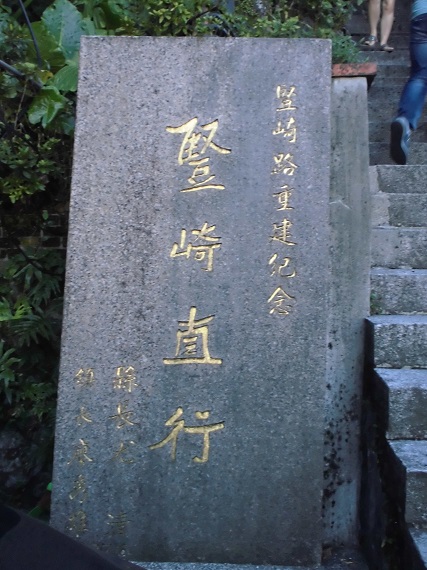 豎崎路重建紀念
豎崎直行
縣長尤清